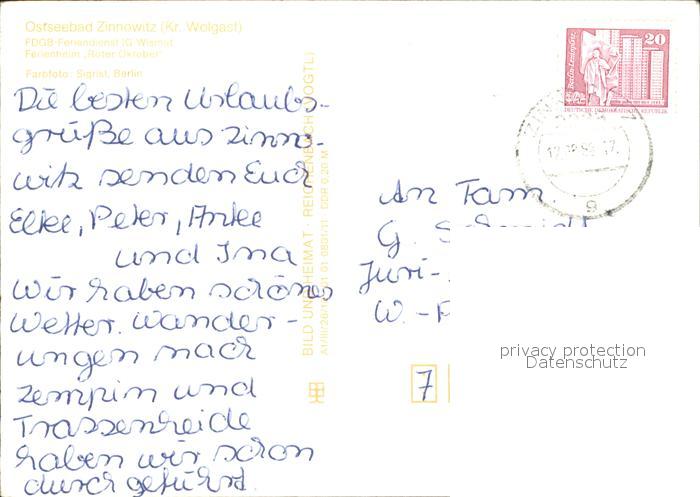 Ostseebad Zinnowitz (Kr. Wolgast)
FDGB-Feriendienst IG Wismut
Ferienheim „Roter Oktober"
Farbfoto: Sigrist, Berlin
Die besten Urlaubs-
grüße aus Zinno-
witz senden Euch
Elke, Peter, Anke
und Ina
Wir haben schönes
Wetter. Wander-
ungen nach
Zempin und
Trassenheide
haben wir schon
durchgeführt.
BILD UND HEIMAT · REICHENBACH (VOGTL)
20
DEUTSCHE DEMOKRATISCHE REPUBLIK
An Fam
G.
Juri-
W.-
7
privacy protection
Datenschutz